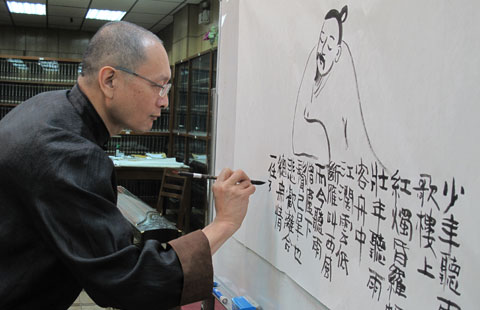 少年聽雨
歌樓上
紅燭昏羅帳
壯年聽雨
客舟中
江闊雲低
斷雁叫西風
而今聽雨
僧廬下
鬢已星也
悲歡離合
總無情
一任